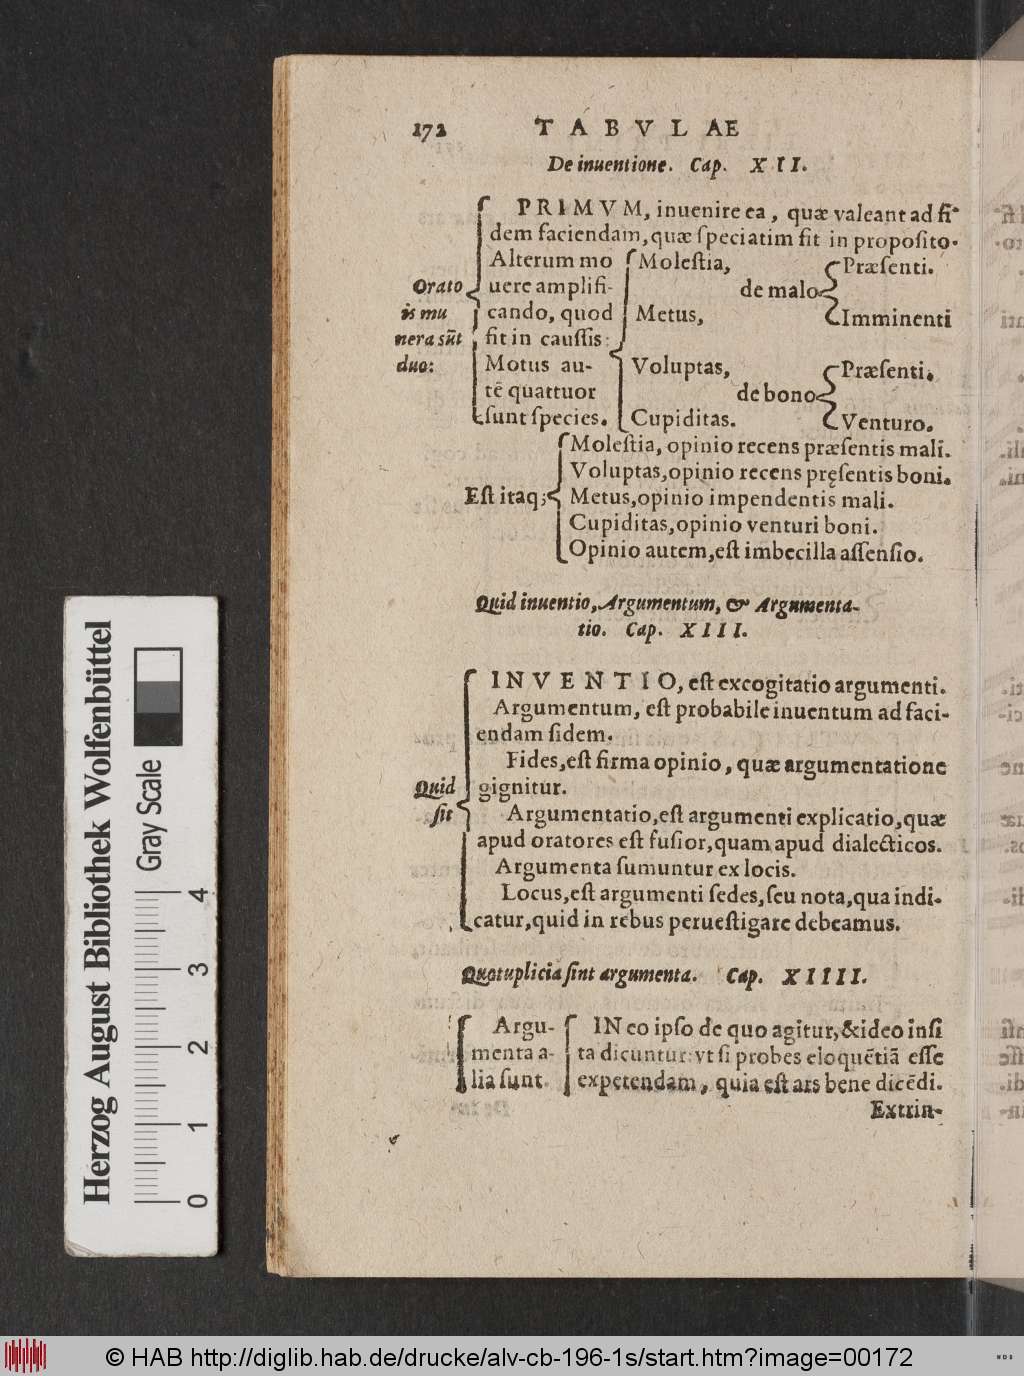 172 TABVLAE
De inuentione. Cap. XII.
PRIMVM, inuenire ea, quæ valeant ad fi-
dem faciendam, quæ speciatim fit in proposito.
Orato
is mu
nera sūt
duo:
Alterum mo
uere amplifi-
cando, quod
fit in caussis:
Motus au-
tē quattuor
sunt species.
Molestia,
Metus,
de malo
Præsenti.
Imminenti
Voluptas,
Cupiditas.
de bono
Præsenti.
Venturo.
Est itaq;
Molestia, opinio recens præsentis mali.
Voluptas, opinio recens pręsentis boni.
Metus, opinio impendentis mali.
Cupiditas, opinio venturi boni.
Opinio autem, est imbecilla assensio.
Quid inuentio, Argumentum, & Argumenta-
tio. Cap. XIII.
Quid
sit
INVENTIO, est excogitatio argumenti.
Argumentum, est probabile inuentum ad faci-
endam fidem.
Fides, est firma opinio, quæ argumentatione
gignitur.
Argumentatio, est argumenti explicatio, quæ
apud oratores est fusior, quam apud dialecticos.
Argumenta sumuntur ex locis.
Locus, est argumenti sedes, seu nota, qua indi-
catur, quid in rebus peruestigare debeamus.
Quotuplicia sint argumenta. Cap. XIIII.
Argu-
menta a-
lia sunt
IN eo ipso de quo agitur, & ideo insi
ta dicuntur: vt si probes eloquētiā esse
expetendam, quia est ars bene dicēdi.
Extrin-
Herzog August Bibliothek Wolfenbüttel
Gray Scale
0 1 2 3 4
© HAB http://diglib.hab.de/drucke/alv-cb-196-1s/start.htm?image=00172